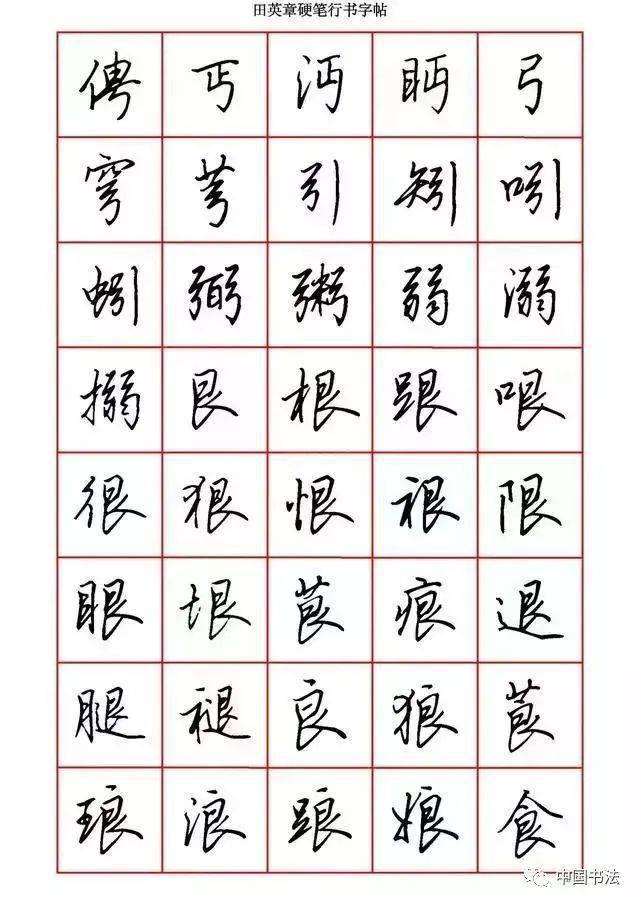 田英章硬笔行书字帖
俜 丏 沔 眄 弓
穹 芎 引 矧 吲
蚓 弼 粥 弱 溺
搦 艮 根 跟 哏
很 狠 恨 裉 限
眼 垠 茛 痕 退
腿 褪 良 狼 莨
琅 浪 踉 娘 食
中国书法